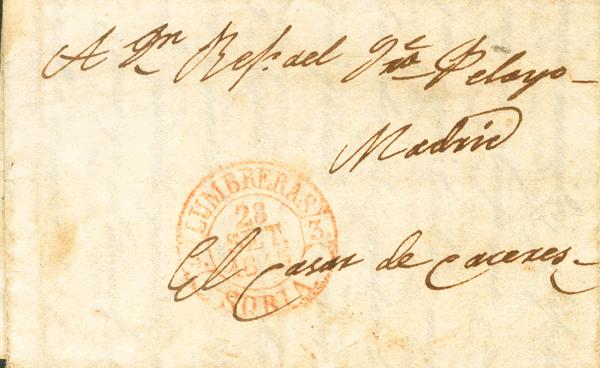 A Dn Rafael
Pelayo
Madrid
LUMBRERAS
28
SET.
SORIA
El Casar de caceres